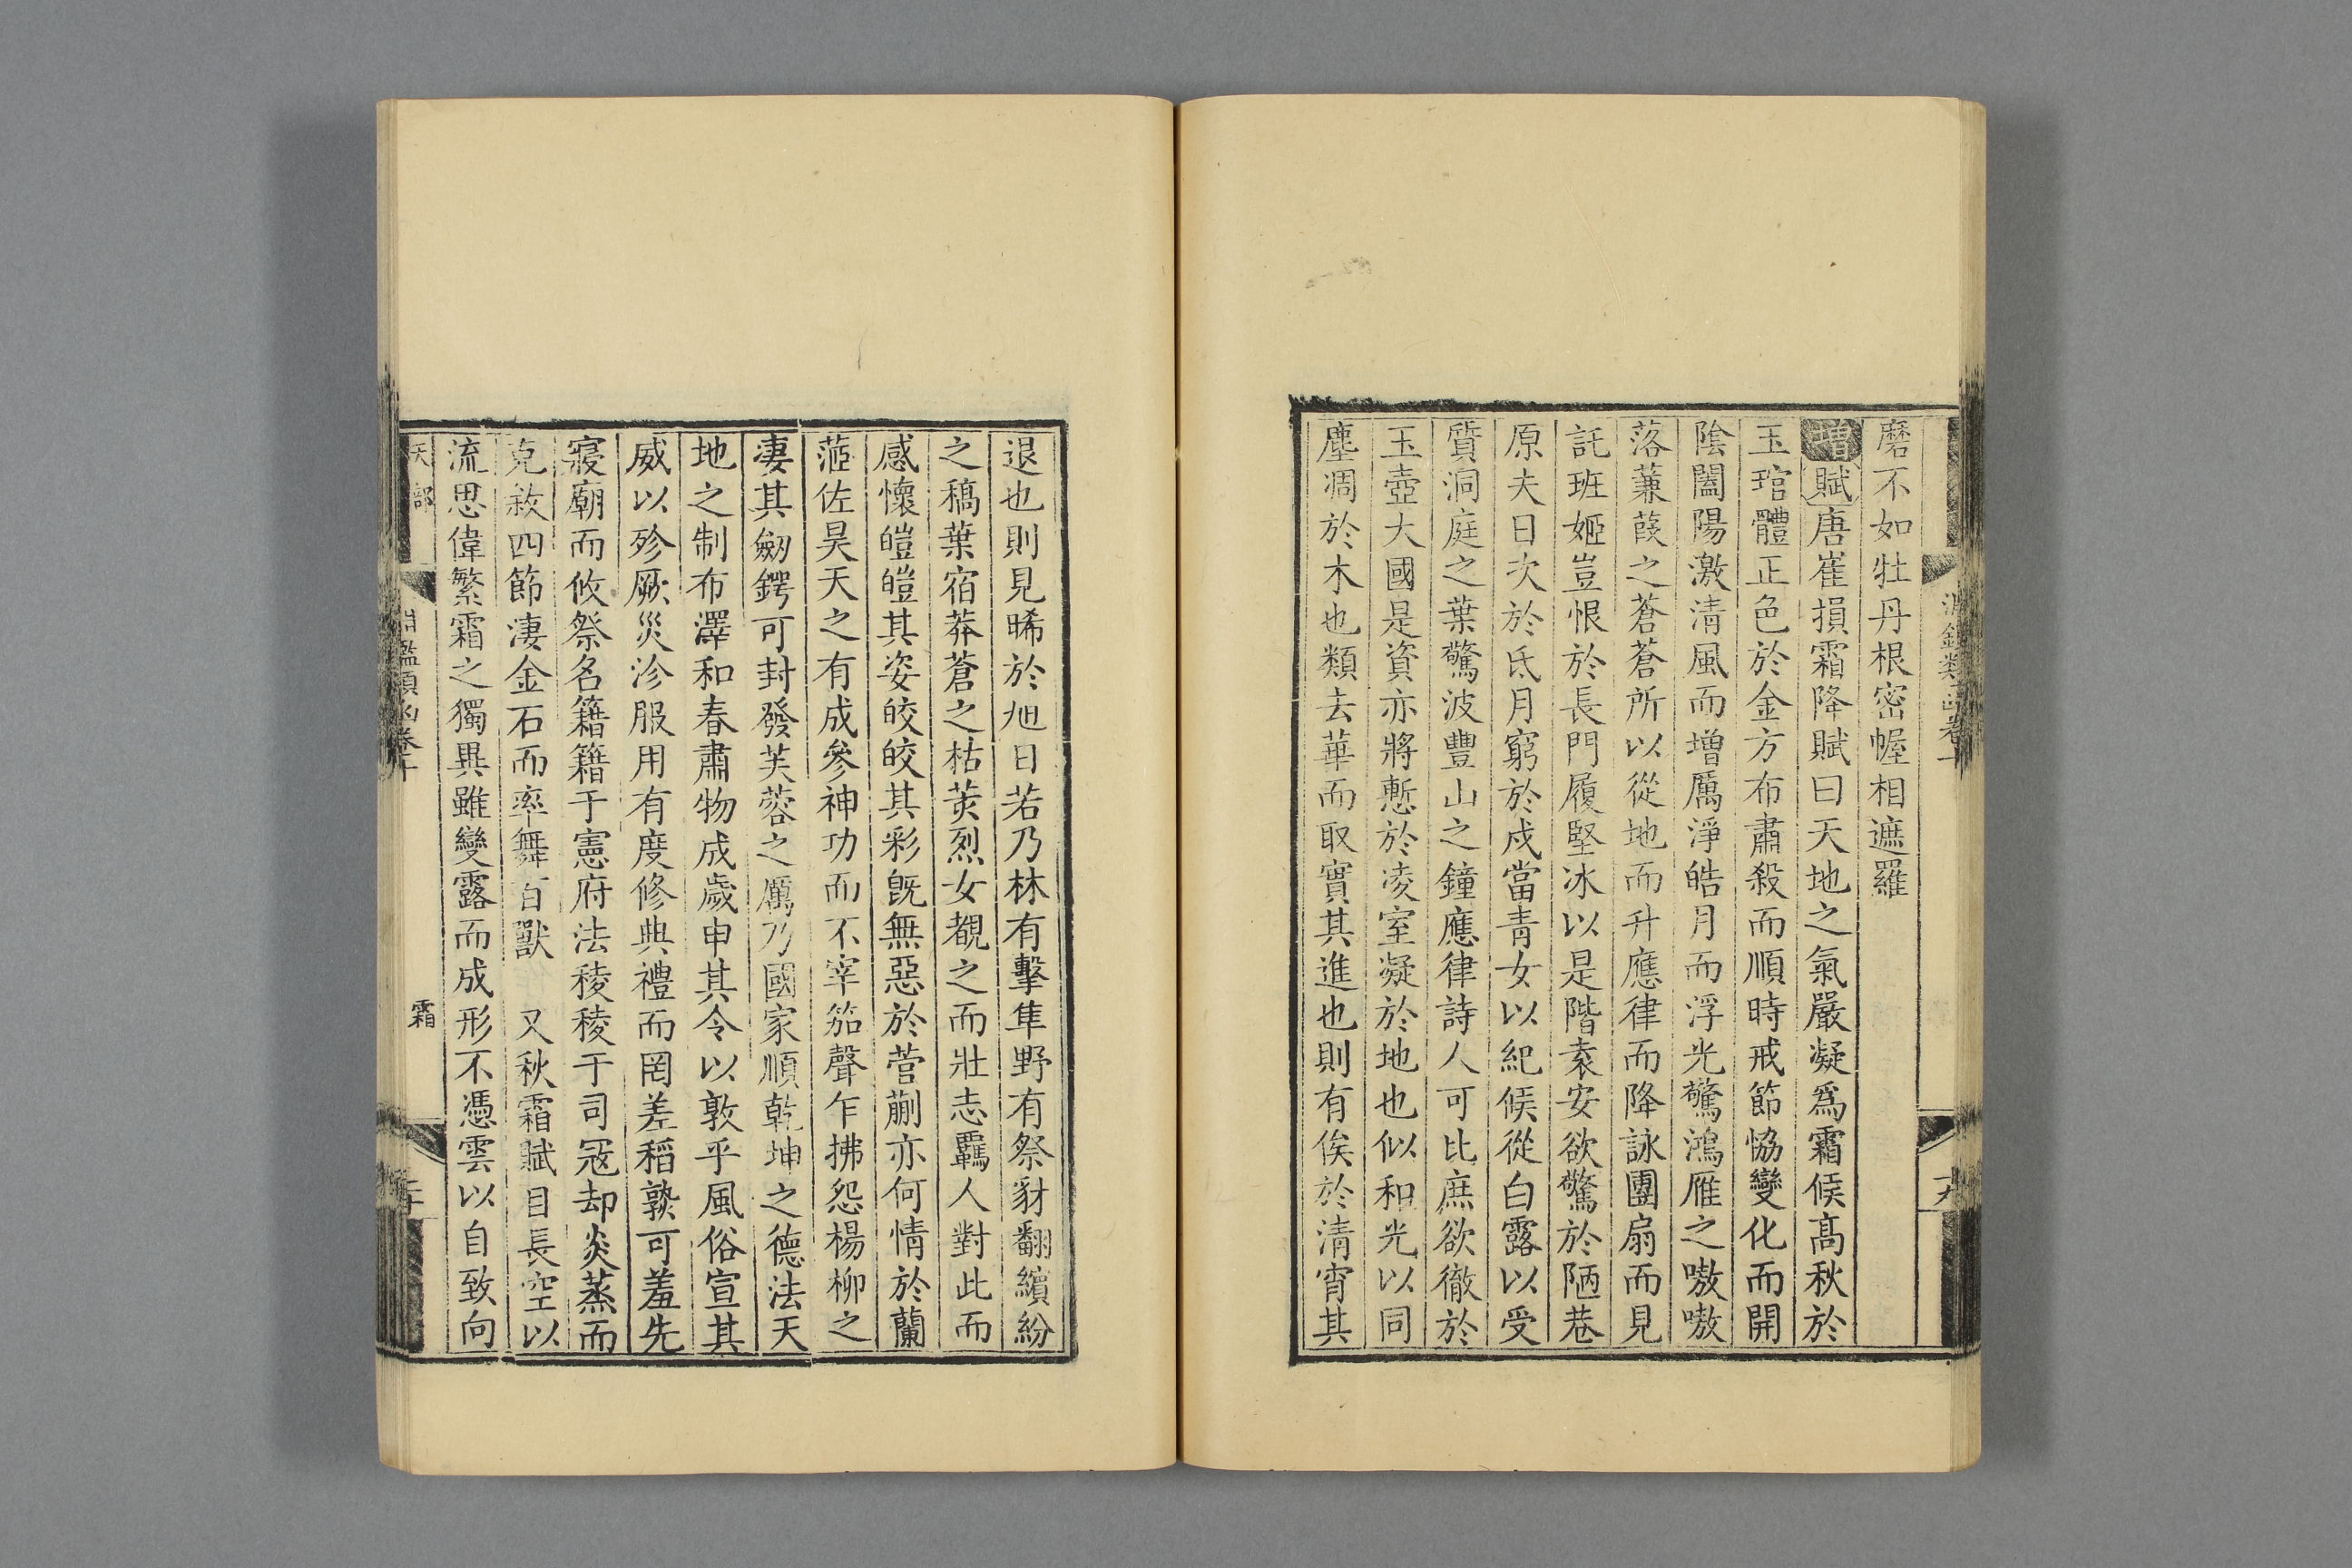 淵鑑類函卷十
十九
磨不如牡丹根密幄相遮羅
增賦唐崔損霜降賦曰天地之氣嚴凝爲霜候髙秋於
玉琯體正色於金方布肅殺而順時戒節恊變化而開
陰闔陽激清風而增厲淨皓月而浮光驚鴻雁之嗷嗷
落蒹葭之蒼蒼所以從地而升應律而降詠團扇而見
託班姬豈恨於長門履堅冰以是階袁安欲驚於陋巷
原夫日次於氐月窮於戌當青女以紀候從白露以受
質洞庭之葉驚波豐山之鐘應律詩人可比庶欲徹於
玉壺大國是資亦將慙於凌室凝於地也似和光以同
塵凋於木也類去華而取實其進也則有俟於清宵其
退也則見晞於旭日若乃林有擊隼野有祭豺翻繽紛
之稿葉宿莽蒼之枯荄烈女覩之而壯志羈人對此而
感懷皚皚其姿皎皎其彩旣無惡於菅蒯亦何情於蘭
茝佐昊天之有成參神功而不宰笳聲乍拂怨楊柳之
凄其劒鍔可封發芙蓉之厲乃國家順乾坤之德法天
地之制布澤和春肅物成歲申其令以敦乎風俗宣其
威以殄厥災沴服用有度修典禮而罔差稻孰可羞先
寢廟而攸祭名籍籍于憲府法稜稜于司寇却炎蒸而
克敘四節淒金石而率舞百獸　又秋霜賦目長空以
流思偉繁霜之獨異雖變露而成形不憑雲以自致向
天部
淵鑑類函卷十
霜
二十